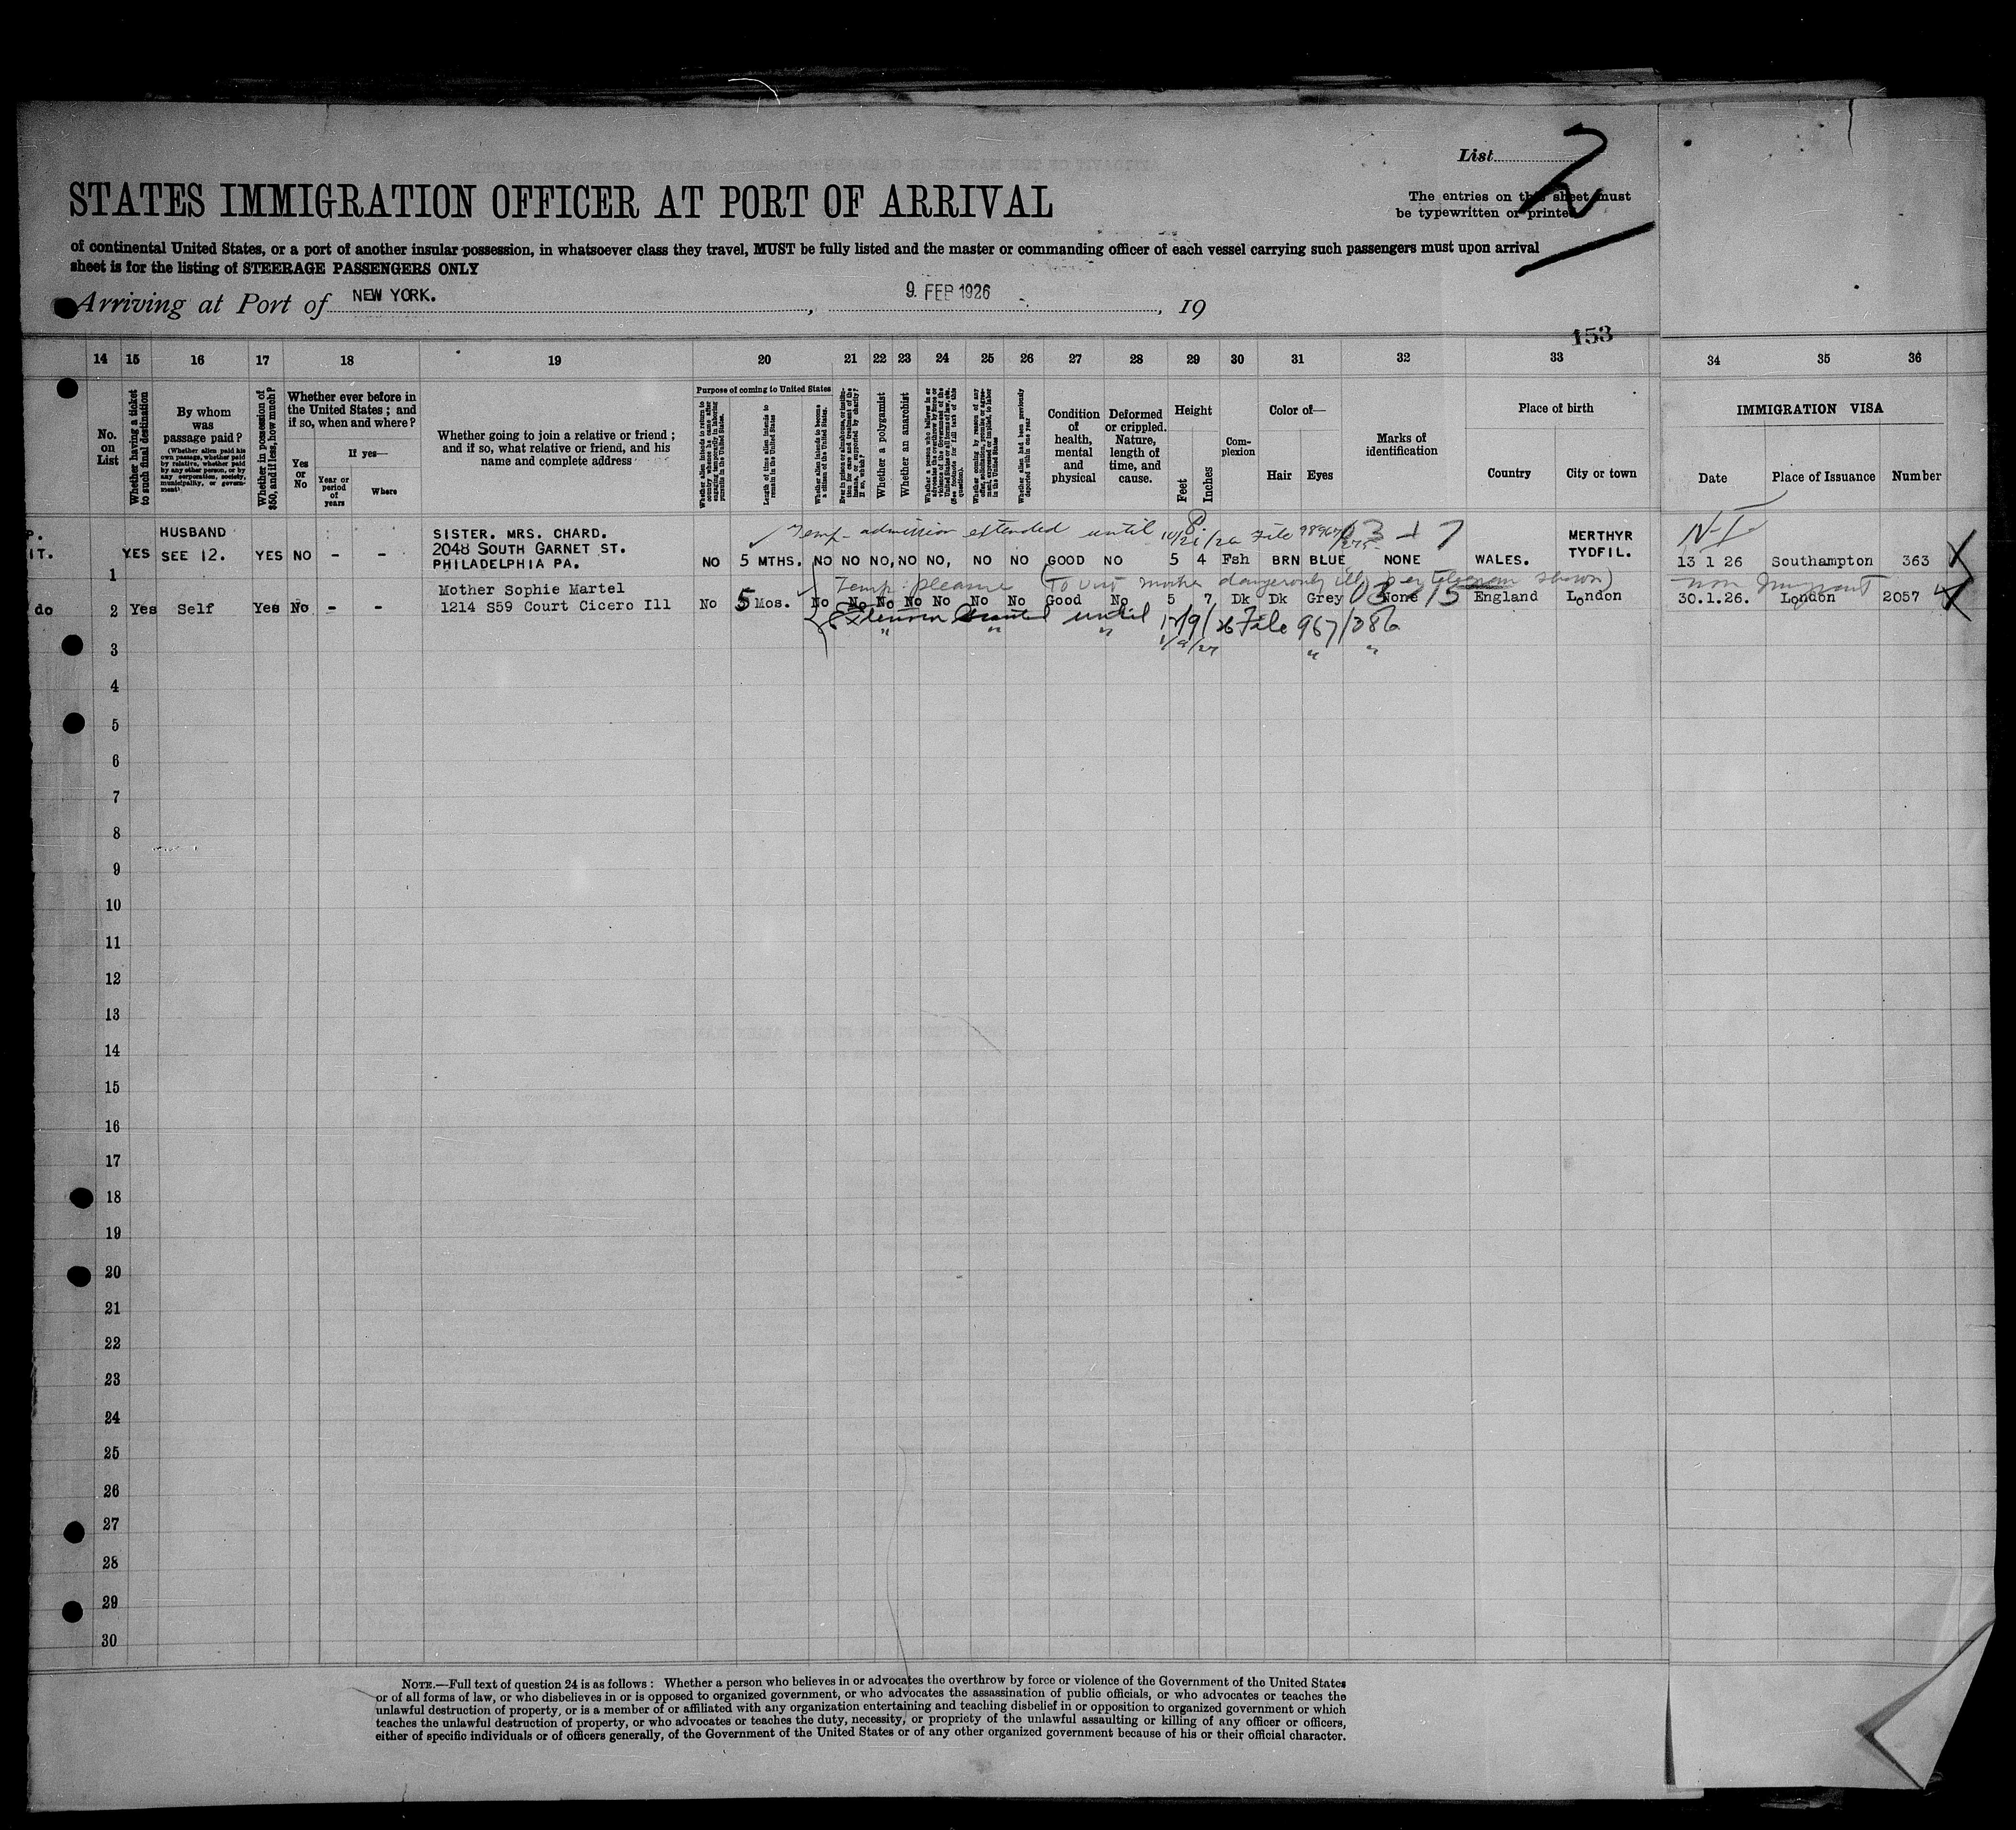 List 2
STATES IMMIGRATION OFFICER AT PORT OF ARRIVAL
The entries on this sheet must
be typewritten or printed
of continental United States, or a port of another insular possession, in whatsoever class they travel, MUST be fully listed and the master or commanding officer of each vessel carrying such passengers must upon arrival
sheet is for the listing of STEERAGE PASSENGERS ONLY
Arriving at Port of NEW YORK. , 9. FEB 1926 , 19
153
14 15 16 17 18 19 20 21 22 23 24 25 26 27 28 29 30 31 32 33 34 35 36
No. on List
Whether having a ticket to such final destination
By whom was passage paid?
(Whether alien paid his own passage, whether paid by relative, whether paid by any other person, or by any corporation, society, municipality, or government)
Whether in possession of $50, and if less, how much?
Whether ever before in the United States; and if so, when and where?
Yes or No
If yes—
Year or period of years
Where
Whether going to join a relative or friend; and if so, what relative or friend, and his name and complete address
Purpose of coming to United States
Whether alien intends to return to country whence he came after engaging temporarily in laboring pursuits in the United States.
Length of time alien intends to remain in the United States
Whether alien intends to become a citizen of the United States.
Ever in prison or almshouse, or institution for care and treatment of the insane, or supported by charity? If so, which?
Whether a polygamist
Whether an anarchist
Whether a person who believes in or advocates the overthrow by force or violence of the Government of the United States or all forms of law, etc. (See footnote for full text of this question).
Whether coming by reason of any offer, solicitation, promise, or agreement, expressed or implied, to labor in the United States
Whether alien had been previously deported within one year
Condition of health, mental and physical
Deformed or crippled. Nature, length of time, and cause.
Height
Feet
Inches
Complexion
Color of—
Hair
Eyes
Marks of identification
Place of birth
Country
City or town
IMMIGRATION VISA
Date
Place of Issuance
Number
Temp- admission extended until 10/21/26 File
P. HUSBAND SISTER. MRS. CHARD. MERTHYR
IT. YES SEE 12. YES NO - - 2048 SOUTH GARNET ST. TYDFIL.
1 PHILADELPHIA PA. NO 5 MTHS. NO NO NO, NO NO, NO NO GOOD NO 5 4 Fsh BRN BLUE NONE WALES. 13 1 26 Southampton 363
Temp: pleasure (To visit mother dangerously ill, per telegram shown) non Immigrant
Mother Sophie Martel
do 2 Yes Self Yes No - - 1214 S59 Court Cicero Ill No 5 Mos. No No No No No No No Good No 5 7 Dk Dk Grey None England London 30.1.26. London 2057
Extension Granted until 12/9/26 File 967/086
3 " " " 1/9/27 " "
4
5
6
7
8
9
10
11
12
13
14
15
16
17
18
19
20
21
22
23
24
25
26
27
28
29
30
NOTE.—Full text of question 24 is as follows: Whether a person who believes in or advocates the overthrow by force or violence of the Government of the United States
or of all forms of law, or who disbelieves in or is opposed to organized government, or who advocates the assassination of public officials, or who advocates or teaches the
unlawful destruction of property, or is a member of or affiliated with any organization entertaining and teaching disbelief in or opposition to organized government or which
teaches the unlawful destruction of property, or who advocates or teaches the duty, necessity, or propriety of the unlawful assaulting or killing of any officer or officers,
either of specific individuals or of officers generally, of the Government of the United States or of any other organized government because of his or their official character.